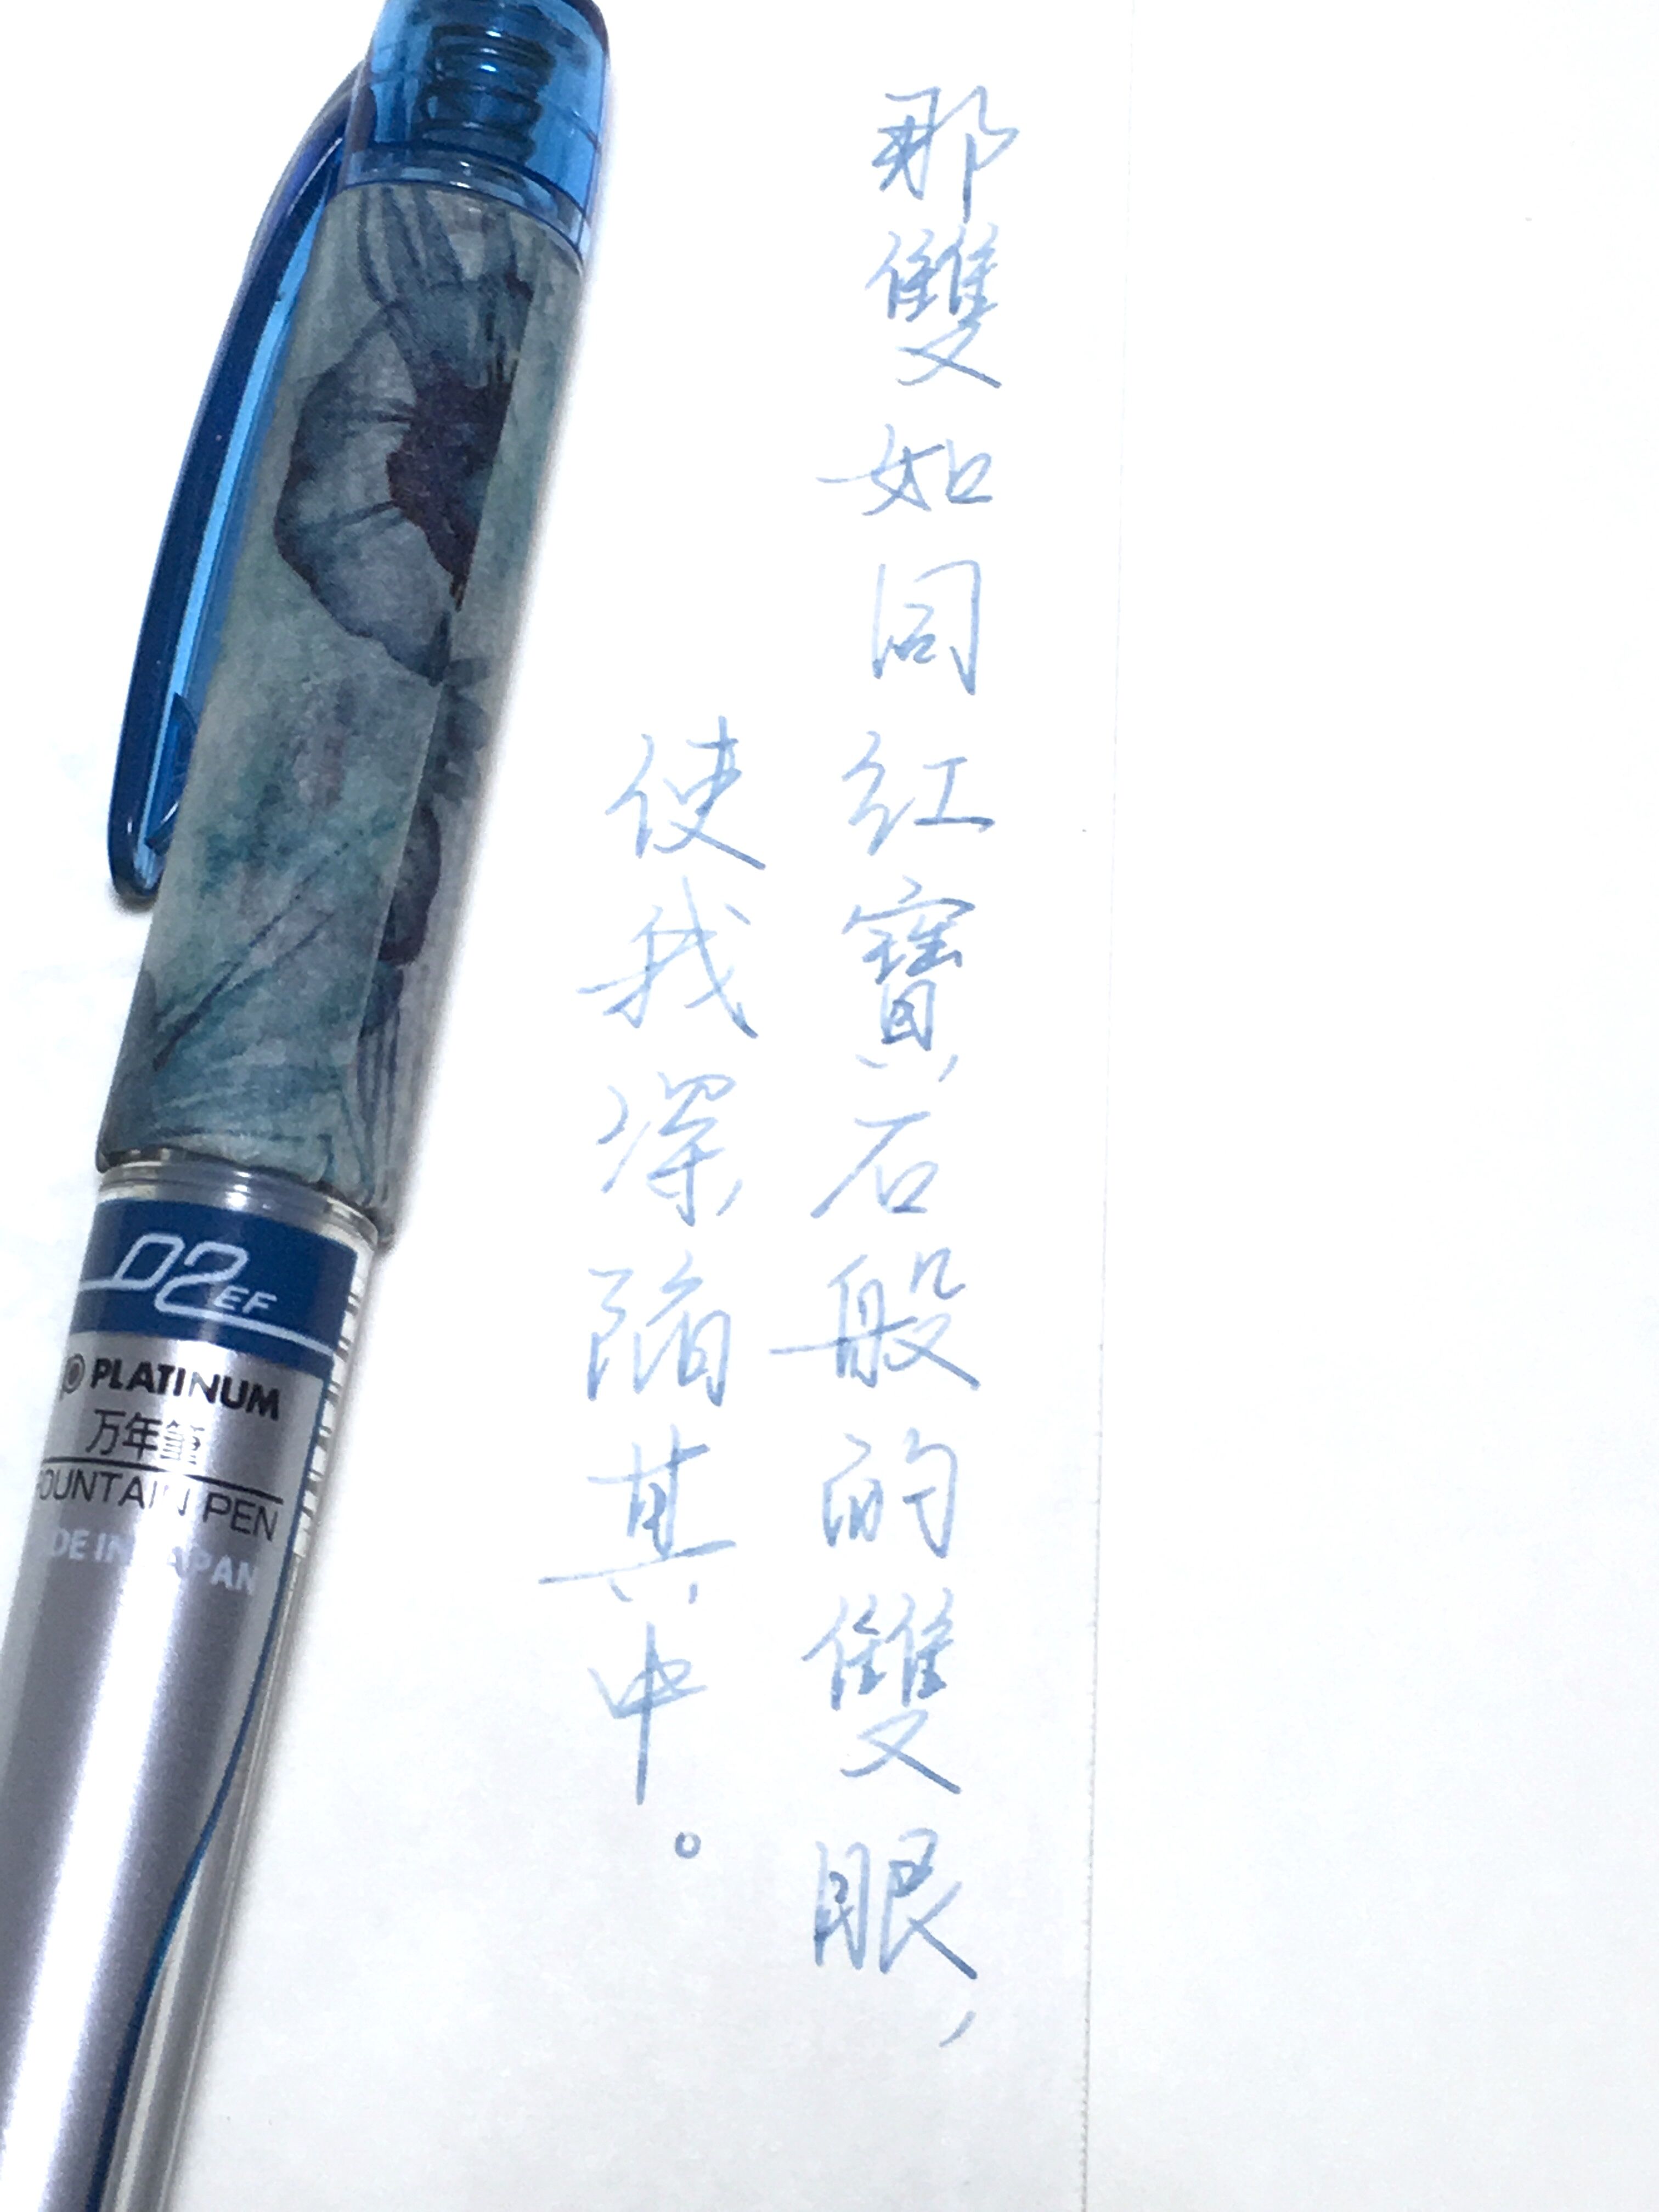 那雙如同紅寶石般的雙眼，
使我深陷其中。
02 EF
PLATINUM
万年筆
FOUNTAIN PEN
MADE IN JAPAN